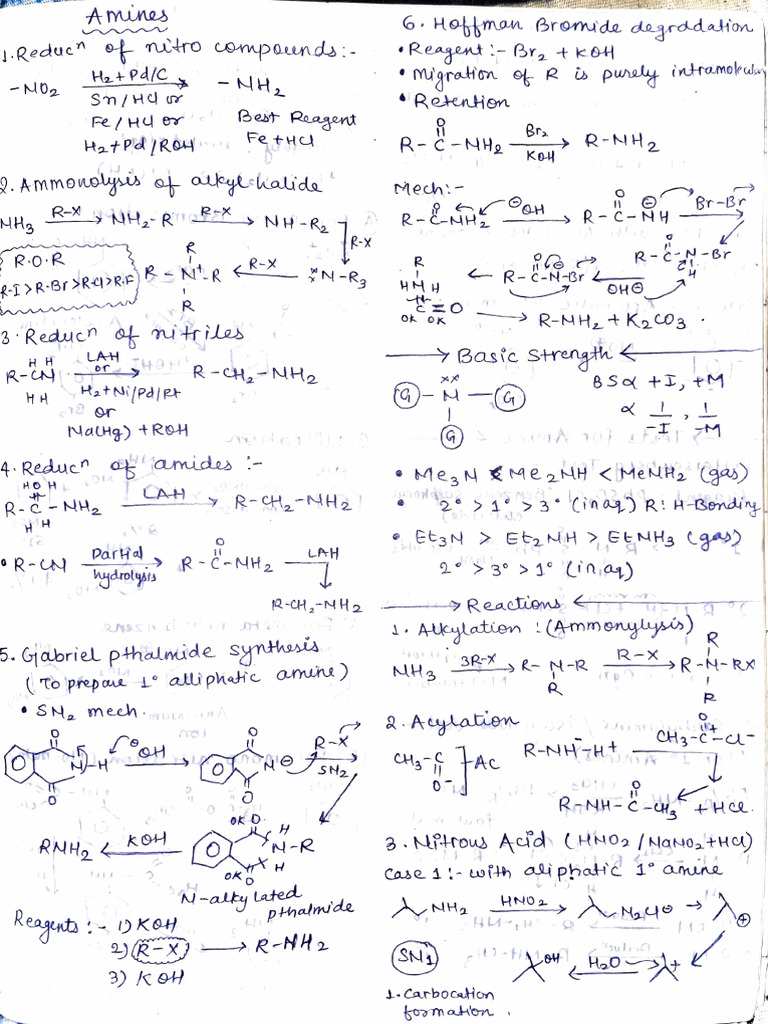 Amines
1. Reducⁿ of nitro compounds:-
-NO2 H2+Pd/C -NH2
Sn/HCl or
Fe/HCl or Best Reagent
H2+Pd/ROH Fe+HCl
2. Ammonolysis of alkyl halide
NH3 R-X NH2-R R-X NH-R2
R-X
R
R-N⁺-R R-X N-R3
R
R.O.R
R-I>R-Br>R-Cl>R-F
3. Reducⁿ of nitriles
H H
R-CN LAH R-CH2-NH2
or
H H H2+Ni/Pd/Pt
or
Na(Hg)+ROH
4. Reducⁿ of amides:-
H O H
R-C-NH2 LAH R-CH2-NH2
H H
• R-CN Partial R-C-NH2 LAH
O
hydrolysis
R-CH2-NH2
5. Gabriel pthalmide synthesis
(To prepare 1° alliphatic amine)
• SN2 mech.
O O
N-H ⊖OH N⊖ R-X
SN2
O O
OK O H
RNH2 KOH N-R
OK O H
N-alkylated
pthalmide
Reagents:- 1) KOH
2) R-X R-NH2
3) KOH
6. Hoffman Bromide degrdation
• Reagent:- Br2+KOH
• Migration of R is purely intramolecular
• Retention
O
R-C-NH2 Br2 R-NH2
KOH
Mech:-
O O
R-C-NH2 ⊖OH R-C-NH⊖ Br-Br
O
R-C-N-Br
H
R O
H-N-H R-C-N⊖-Br OH⊖
C=O
OK OK R-NH2+K2CO3.
Basic Strength
G-N-G BS∝ +I, +M
G ∝ 1/-I, 1/-M
• Me3N < Me2NH < MeNH2 (gas)
• 2° > 1° > 3° (in aq) R: H-Bonding
• Et3N > Et2NH > EtNH3 (gas)
2° > 3° > 1° (in aq)
Reactions
1. Alkylation: (Ammonylysis)
R
NH3 3R-X R-N-R R-X R-N-RX
R R
2. Acylation
CH3-C Ac R-NH⁻-H⁺ CH3-C⁺-Cl⁻
O
O⁻
O
R-NH-C-CH3 +HCl.
3. Nitrous Acid (HNO2/NaNO2+HCl)
Case 1:- with aliphatic 1° amine
NH2 HNO2 N2Cl⊖ ⊕
SN1 OH H2O +
1. Carbocation
formation.